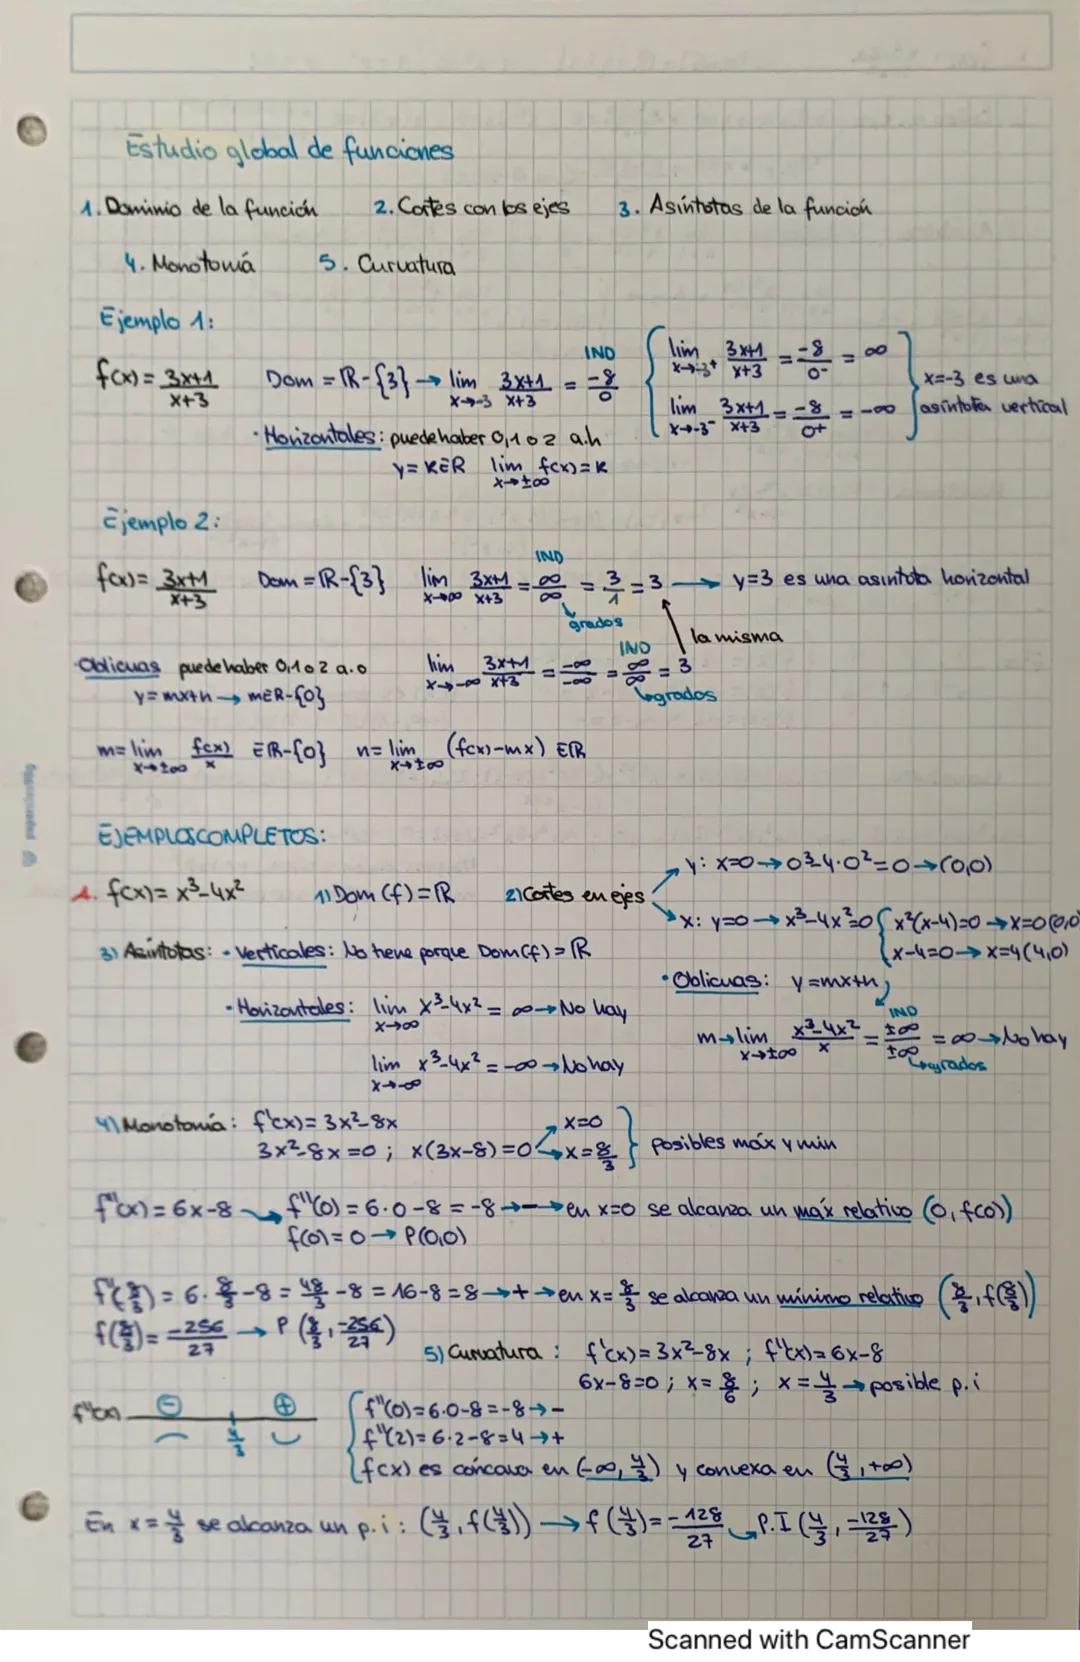 Estudio global de funciones
1. Dominio de la función 2. Cortes con los ejes 3. Asíntotas de la función
4. Monotonía 5. Curvatura
Ejemplo 1:
f(x) = (3x+1)/(x+3) Dom = ℝ-{3} → lim x→-3 (3x+1)/(x+3) = -8/0 IND { lim x→-3⁺ (3x+1)/(x+3) = -8/0⁻ = ∞
lim x→-3⁻ (3x+1)/(x+3) = -8/0⁺ = -∞ } x=-3 es una asíntota vertical
· Horizontales: puede haber 0,1 o 2 a.h
y = K∈ℝ lim x→±∞ f(x) = K
Ejemplo 2:
f(x) = (3x+1)/(x+3) Dom = ℝ-{3} lim x→∞ (3x+1)/(x+3) = ∞/∞ IND grados = 3/1 = 3 → y=3 es una asíntota horizontal
la misma
·Oblicuas puede haber 0,1 o 2 a.o lim x→-∞ (3x+1)/(x+3) = -∞/-∞ = ∞/∞ IND grados = 3
y = mx+n → m∈R-{0}
m = lim x→±∞ f(x)/x ∈ℝ-{0} n = lim x→±∞ (f(x)-mx) ∈ℝ
EJEMPLOS COMPLETOS:
1. f(x) = x³-4x² 1) Dom (f) = ℝ 2) Cortes en ejes
y: x=0 → 0³-4·0²=0 → (0,0)
x: y=0 → x³-4x²=0 { x²(x-4)=0 → x=0 (0,0)
x-4=0 → x=4 (4,0)
3) Asíntotas: · Verticales: No tiene porque Dom(f) = ℝ
· Horizontales: lim x→∞ x³-4x² = ∞ → No hay
lim x→-∞ x³-4x² = -∞ → No hay
· Oblicuas: y = mx+n
m → lim x→±∞ (x³-4x²)/x = ±∞/±∞ IND grados = ∞ → No hay
4) Monotonía: f'(x) = 3x²-8x
3x²-8x = 0 ; x(3x-8) = 0 x=0 x=8/3 } posibles máx y min
f''(x) = 6x-8 → f''(0) = 6·0-8 = -8 → - → en x=0 se alcanza un máx relativo (0, f(0))
f(0) = 0 → P(0,0)
f''(8/3) = 6·8/3-8 = 48/3-8 = 16-8 = 8 → + → en x=8/3 se alcanza un mínimo relativo (8/3, f(8/3))
f(8/3) = -256/27 → P (8/3, -256/27)
5) Curvatura: f'(x) = 3x²-8x ; f''(x) = 6x-8
6x-8=0 ; x=8/6 ; x=4/3 → posible p.i
f''(x) - + 4/3
{ f''(0) = 6·0-8 = -8 → -
f''(2) = 6·2-8 = 4 → +
f(x) es cóncava en (-∞, 4/3) y convexa en (4/3, +∞)
En x=4/3 se alcanza un p.i: (4/3, f(4/3)) → f(4/3) = -128/27 → P.I (4/3, -128/27)
Scanned with CamScanner